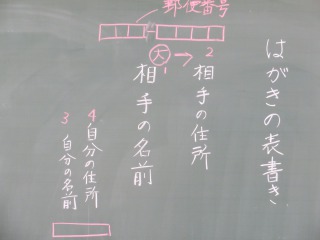 はがきの表書き
郵便番号
大 → 2
相手の住所
1
相手の名前
4
自分の住所
3
自分の名前